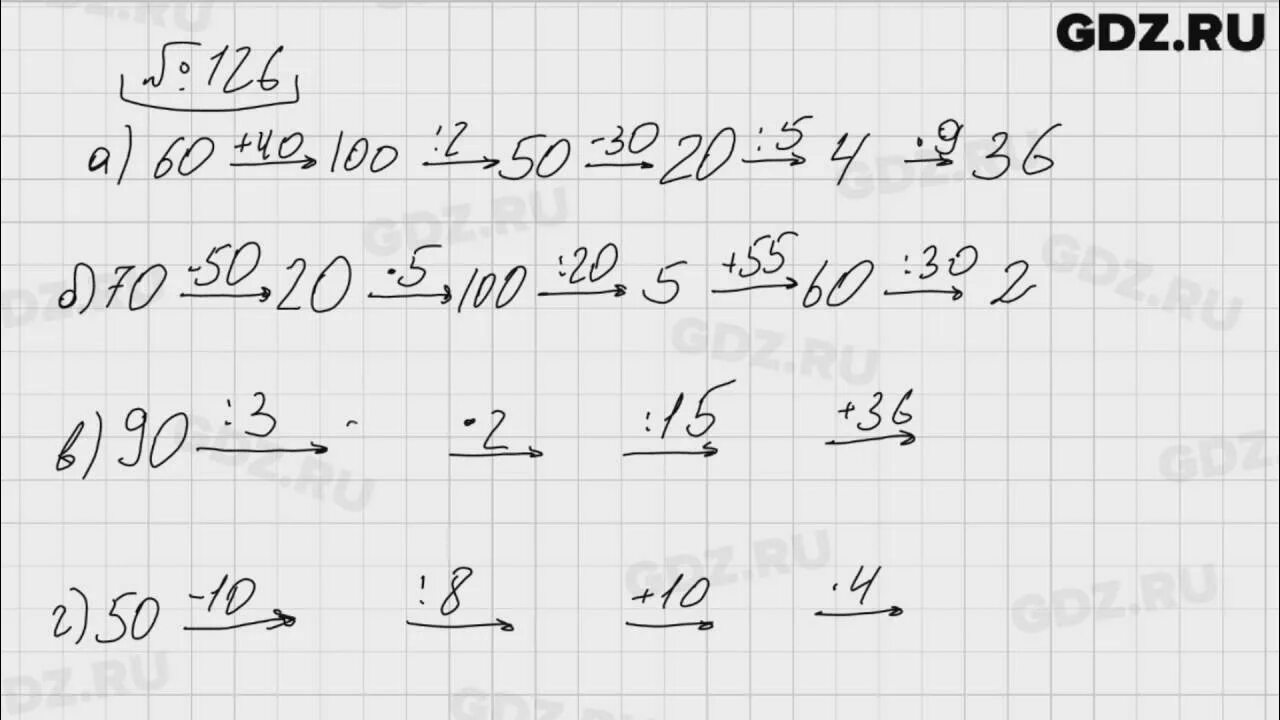 GDZ.RU
№ 126
а) 60 +40→ 100 :2→ 50 -30→ 20 :5→ 4 ·9→ 36
б) 70 -50→ 20 ·5→ 100 :20→ 5 +55→ 60 :30→ 2
в) 90 :3→ ·2→ :15→ +36→
г) 50 -10→ :8→ +10→ ·4→